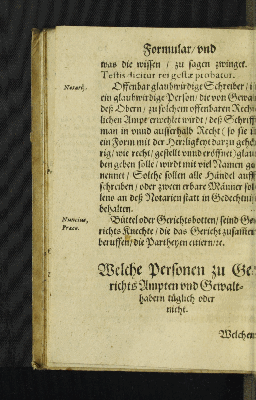 Formular/ vnd
was die wissen / zu sagen zwinget.
Testis dicitur rei gestæ probator.
Notarij.
Offenbar glaubwirdige Schreiber/
ein glaubwirdige Person/ die von Gewal
deß Obern / zu solchem offenbaren Recht
lichen Ampt erwehlet wirdt / deß Schrifft
man in vnnd ausserhalb Recht / so sie
ein Form mit der Herrligkeyt darzu gehö
rig / wie recht / gestellt vnnd eröffnet / glau
ben geben solle / wirdt mit viel Namen ge
nennet / Solche sollen alle Händel auff
schreiben / oder zween erbare Männer sol
lens an deß Notarien statt in Gedechtnuß
behalten.
Nuncius,
Præco.
Büttel oder Gerichtsbotten / seind Ge
richts Knechte / die das Gericht zusamen
beruffen / die Partheyen citiern/ ꝛc.
Welche Personen zu Ge-
richts Ampten vnd Gewalt-
habern tüglich oder
nicht.
Welchen